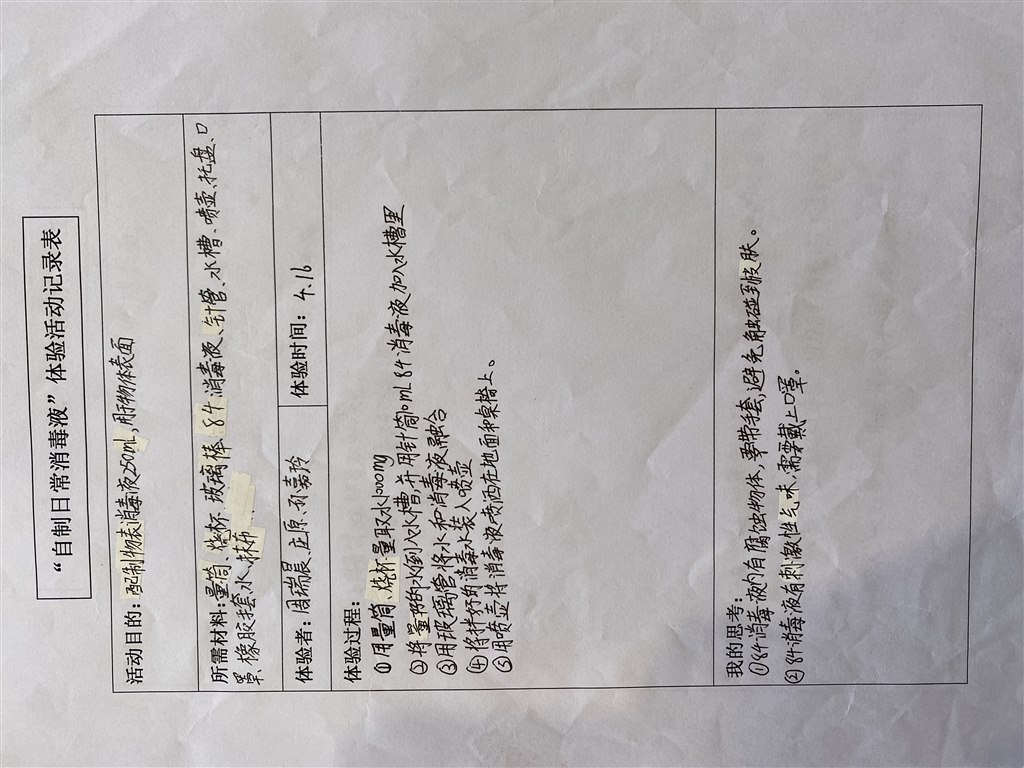 “自制日常消毒液”体验活动记录表
活动目的：配制物表消毒液250ml，用于物体表面
所需材料：量筒、烧杯、玻璃棒、84消毒液、针管、水槽、喷壶、托盘、口
罩、橡胶手套、水、抹布
体验者：周瑞晨、庄原、孙嘉玲
体验时间：4.16
体验过程：
①用量筒、烧杯量取水
②将量好的水倒入水槽，并用针筒10mL84消毒液加入水槽里
③用玻璃管将水和消毒液融合
④将拌好的消毒水装入喷壶
⑤用喷壶将消毒液喷洒在地面和桌椅上。
我的思考：
①84消毒液的有腐蚀物体，要带手套，避免触碰到皮肤。
②84消毒液有刺激性气味，需要戴上口罩。